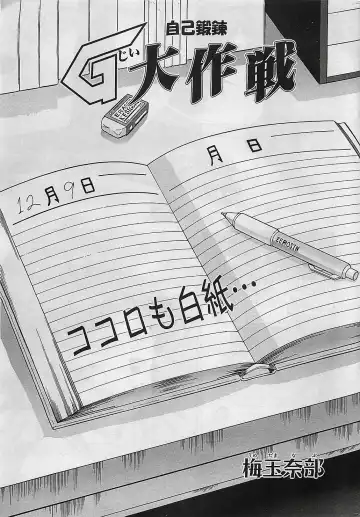 自己鍛錬
G大作戦
じい
12月9日
月 日
ココロも白紙…
うめ だま な ぶ
梅玉奈部